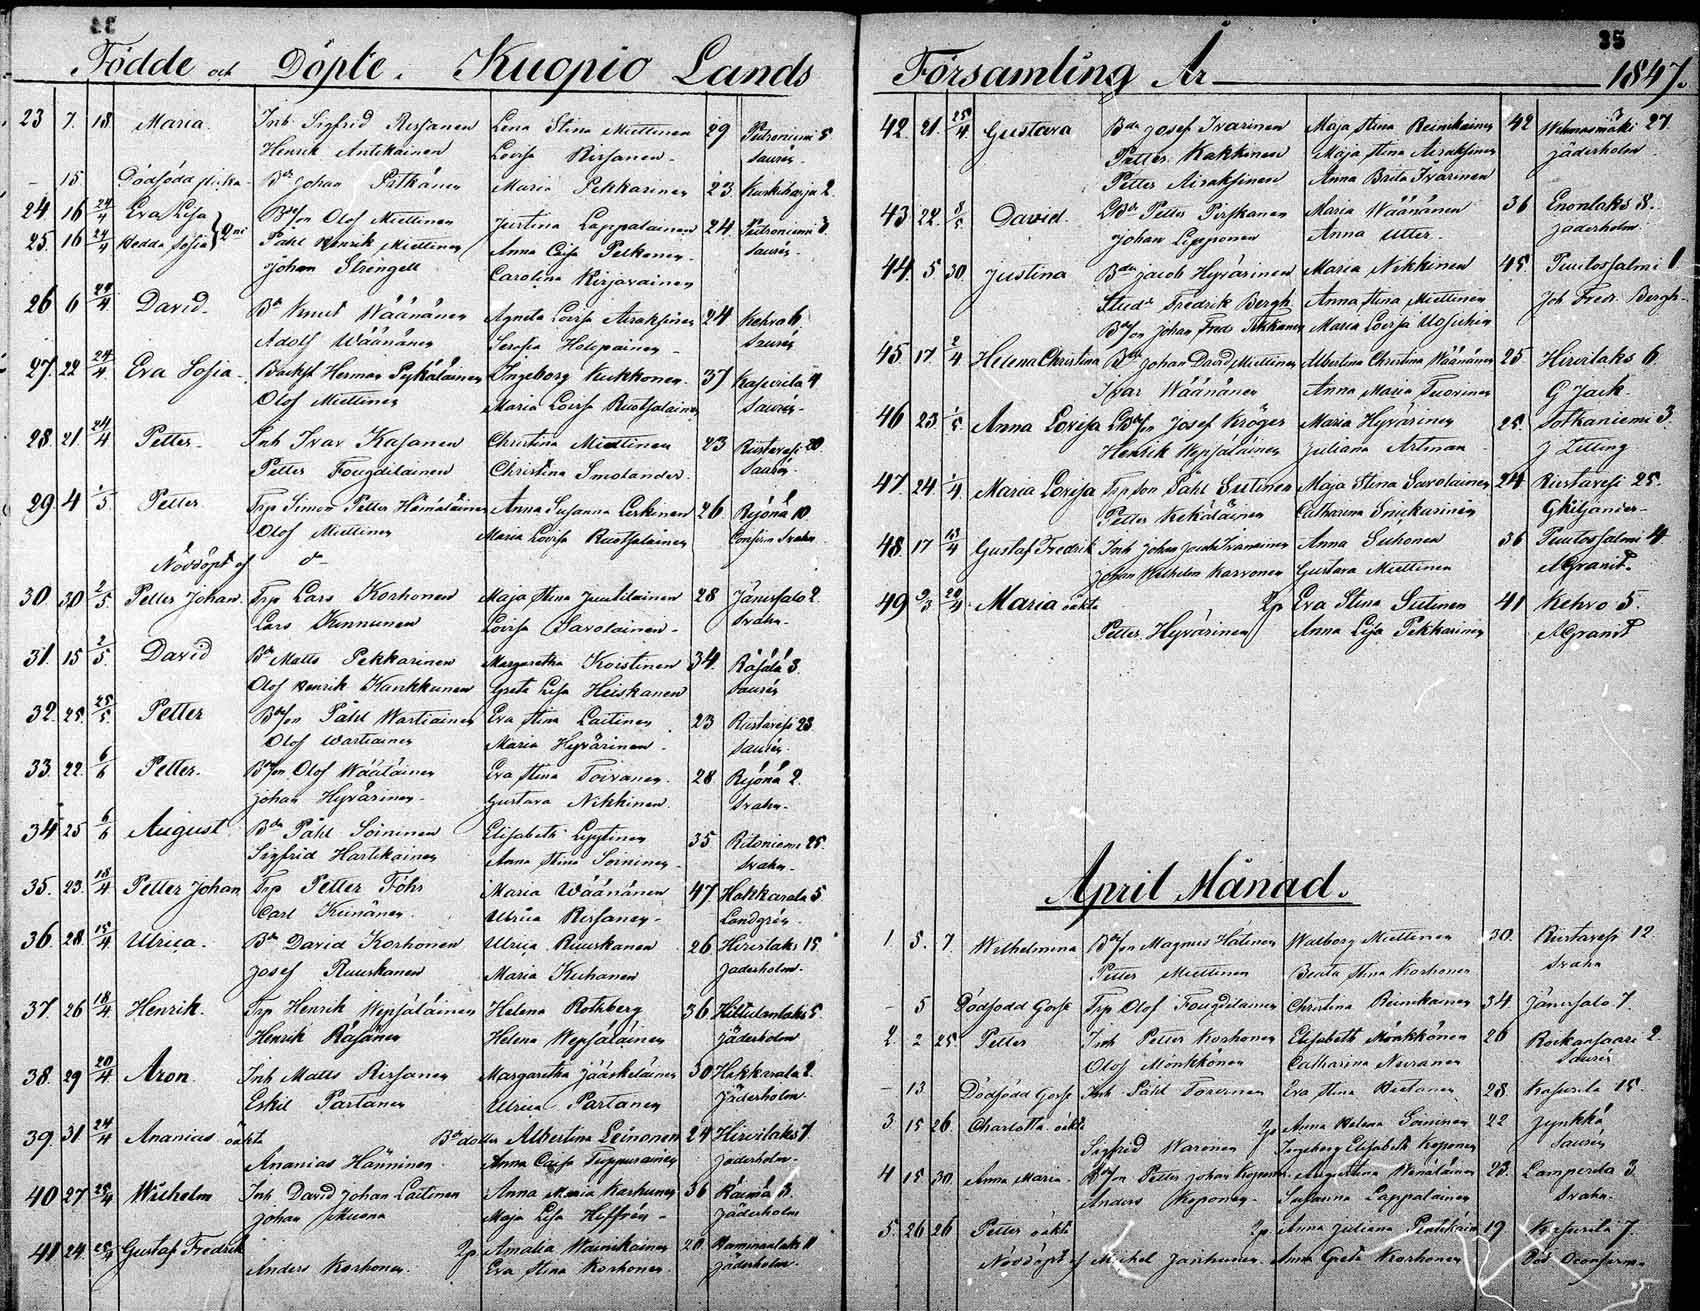 35
Födde och Döpte. Kuopio Lands Församling År 1847.
23 7. 18 Maria. Inh Sigfrid Rissanen Lena Stina Miettinen 29 Putroniemi 5
Henrik Antikainen Lovisa Rissanen Saurén
– 15 Dödfödd flicka Bd Johan Pitkänen Maria Pekkarinen 23 Kurkiharju 2
24 16 24/4 Eva Lisa Bdson Olof Miettinen Justina Lappalainen 24 Putroniemi 3
25. 16 24/4 Hedda Sofia Påhl Henrik Miettinen Anna Caisa Pelkonen Saurén
Johan Strengell Carolina Kirjavainen
26 6 24/4 David Bd Knut Wäänänen Agneta Lovisa Airaksinen 24 Kehvo 6
Adolf Wäänänen Serafia Holopainen Saurén
27. 22 24/4 Eva Sofia Backst Herman Pyykäläinen Ingeborg Kukkonen 37 Kasurila 4
Olof Miettinen Maria Lovisa Ruotsalainen Saurén
28. 21 24/4 Petter Inh Ivar Kasanen Christina Miettinen 23 Riistavesi 20
Petter Fougdilainen Christina Smolander Saurén
29. 4 1/5 Petter Trp Simon Petter Hämäläinen Anna Susanna Leskinen 26. Räjönä 10
Olof Miettinen Maria Lovisa Ruotsalainen Confirm Svahn
Nöddöpt af d–
30 30 2/5 Petter Johan Trp Lars Korhonen Maja Stina Juutilainen 28 Jänissalo 2
Lars Kinnunen Lovisa Savolainen Svahn
31. 15 2/5 David Bd Matts Pekkarinen Margaretha Koistinen 34. Räsälä 3.
Olof Henrik Kankkunen Greta Lisa Heiskanen Saurén
32. 25. 25/5 Petter Bdson Påhl Wartiainen Eva Stina Laitinen 23 Riistavesi 23
Olof Wartiainen Maria Hyvärinen Saurén
33. 22. 6/6 Petter. Bdson Olof Wäätäinen Eva Stina Toivanen 28 Räjönä 2.
Johan Hyvärinen Gustava Nikkinen Svahn
34 25 6/6 August Bd Påhl Soininen Elisabeth Lyytinen 35 Ritoniemi 25
Sigfrid Hartikainen Anna Stina Soininen Svahn
35. 23. 18/4 Petter Johan Trp Petter Föhr Maria Wäänänen 47 Hakkarala 5
Carl Keinänen Ulrica Rissanen Landgrén
36. 28. 15/4 Ulrica. Bd David Korhonen Ulrica Ruuskanen 26 Hirvilaks 15
Josef Ruuskanen Maria Kuhanen Jäderholm
37. 26 18/4 Henrik. Trp Henrik Wepsäläinen Helena Rothberg 36 Hiltulanlaks 5
Henrik Räsänen Helena Wepsäläinen Jäderholm
38. 29 20/4 Aron Inh Matts Rissanen Margaretha Jääskeläinen 30 Hakkarala 2
Eskil Partanen Ulrica Partanen Jäderholm
39. 31 24/4 Ananias oäkta Bddotter Albertina Leinonen 24 Hirvilaks 1
Ananias Hänninen Anna Caisa Tuppurainen Jäderholm
40 27 25/4 Wilhelm Inh David Johan Laitinen Anna Maria Karhunen 36 Räimä 3.
Johan Maja Lisa Heffrén Jäderholm
41 24. 25/4 Gustaf Fredrik Pp Amalia Wainikainen 20. Kaminanlaks 11
Anders Korhonen Eva Stina Korhonen Jäderholm
35
42. 21. 25/4 Gustava Bd Josef Ivarinen Maja Stina Reinikainen 42 Wehmasmäki 27
Petter Kakkinen Maja Stina Airaksinen Jäderholm
Petter Airaksinen Anna Brita Ivarinen
43 22. 8/5 David. Bd Petter Pirskanen Maria Wäänänen 36 Enonlaks 8.
Johan Lipponen Anna Utter Jäderholm
44. 5 30. Justina Bd Jacob Hyvärinen Maria Nikkinen 45. Puutossalmi 1
Stud Fredrik Bergh Anna Stina Miettinen Joh Fredr. Bergh
Bdson Johan Fred Tikkanen Maria Lovisa
45 17. 2/4 Helena Christina Bd Johan David Miettinen Albertina Christina Wäänänen 25 Hirvilaks 6
Ivar Wäänänen Anna Maria Tuovinen G Jack
46 23. 1/5 Anna Lovisa Josef Kröger Maria Hyvärinen 25. Sotkaniemi 3
Henrik Wepsäläinen Juliana Artman J Zitting
47. 24. 1/4 Maria Lovisa Trp son Påhl Sutinen Maja Stina Savolainen 24 Riistavesi 25.
Petter Kekäläinen Catharina Snickarinen G Kiljander
48. 17 13/4 Gustaf Fredrik Inh Johan Jacob Ivananinen Anna Suhonen 36 Puutossalmi 4
Johan Wilhelm Karvonen Gustava Miettinen A Granit
49 9/3 20/4 Maria oäkta Pp Eva Stina Sutinen 41 Kehvo 5.
Petter Hyvärinen Anna Lisa Pekkarinen A Granit
April Månad.
1. 5. 7. Wilhelmina Bdson Magnus Hätinen Walborg Miettinen 30. Riistavesi 12.
Petter Miettinen Beata Stina Korhonen Svahn
– 5 Dödfödd Gosse Trp Olof Fougdilainen Christina Reinikainen 34 Jänissalo 7.
2. 2 25 Petter Inh Petter Korhonen Elisabeth Mönkkönen 26 Roikansaari 2.
Olof Mönkkönen Catharina Nevanen Saurén
– 13 Dödfödd Gosse Inh Påhl Toivinen Eva Stina Rietanen 28. Kasurila 15.
3 15 26. Charlotta oäkta Pp Anna Helena Soininen 22 Jynkkä
Sigfrid Waronen Ingeborg Elisabeth Koponen Saurén
4 15. 30. Anna Maria Bdson Petter Johan Koponen Augustina Wänäläinen 23. Lamperila 3.
Anders Koponen Susanna Lappalainen Svahn
5. 26 26 Petter oäkta Pp Anna Juliana Pentikäin 19 Kasurila 7.
Nöddöpt af Michel Jauhiainen Anna Greta Korhonen Död Oconfirm.